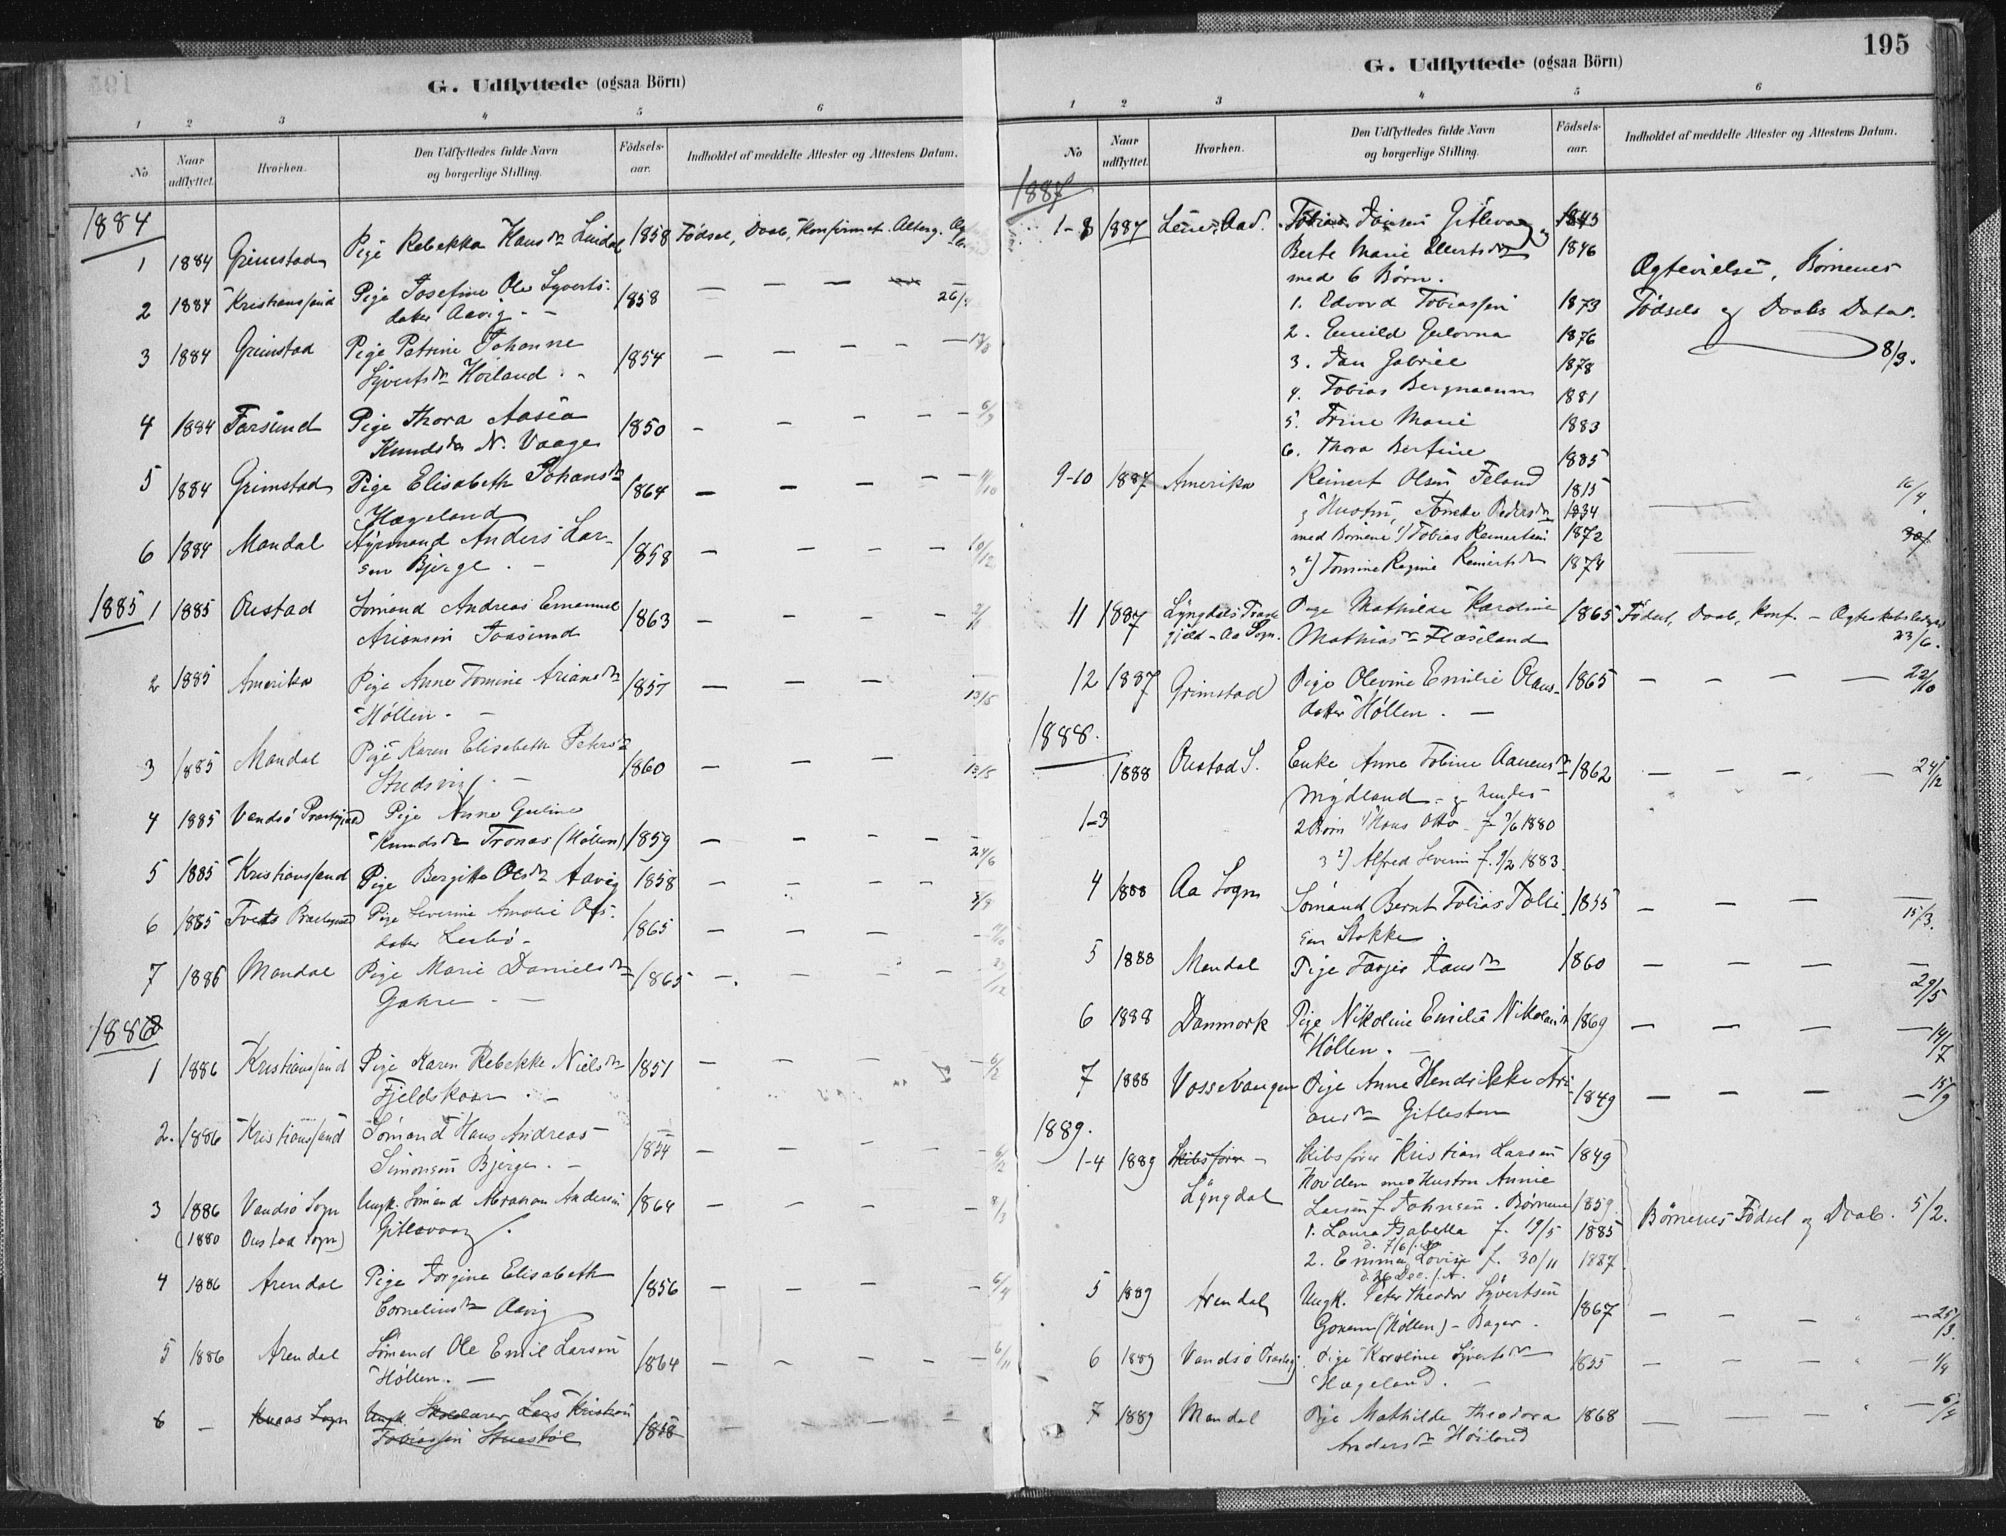 G. Udflyttede (ogsaa Börn)
1 2 3 4 5 6
No
Naar udflyttet.
Hvorhen.
Den Udflyttedes fulde Navn og borgerlige Stilling.
Födsels-aar.
Indholdet af meddelte Attester og Attestens Datum.
1884
1 1884 Grimstad Pige Rebekka Hansdr Lindal 1858 Fødsel, Daab, Konfirmat. Alterg.
2 1884 Kristianssand Pige Josefine Ole Syverts- 1858 — — — 26/4
datter Aavig. -
3 1884 Grimstad Pige Petrine Johanne 1854 — — — —
Syvertsdr Höiland. -
4 1884 Farsund Pige Thora Aasea 1850 - - - - 6/9
Knudsdr N. Vaage
5 1884 Grimstad Pige Elisabeth Johansdr 1864 — — — — /10
Hægeland
6 1884 Mandal Styrmand Anders Lar- 1858 — - - - 10/12
sen Bjerge. -
1885
1 1885 Oustad Sömand Andreas Emanuel 1863 - - - - 2/1
Arionsen
2 1885 Amerika Pige Anne Tomine Ariansdr 1857 — — — — 13/5
Höllen. -
3 1885 Mandal Pige Karen Elisabeth Petersdr 1860 — — — 13/5
4 1885 Vandsö Præstegjeld Pige Anne Guline
Knudsdr Tronas (Höllen) 1859 — — — 24/6
5 1885 Kristianssand Pige Bergitte Olsdr Aavig 1858 — — — —
6 1885 Tveits Præstegjeld Pige Severine Amalie Ols- 1865 — — — —
datter
7 1886 Mandal Pige Marie Danielsdr 1865 — — — — /12
Gahre. -
1886
1 1886 Kristianssand Pige Karen Rebekke Nielsdr 1851 — — — — 6/2
Fjeldskaar. -
2. 1886 Kristianssand Sömand Hans Andreas 1854 — — — — 6/2
Simonsen Bjerge. -
3 1886 Vandsö Sogn Ungk. Sömand Abraham Andersen 1864 — — — — 8/3
(1880 Oustad Sogn) Gitlevaag.
4 1886 Arendal Pige Torgine Elisabeth 1856 — — — — 6/4
Corneliusdr Aavig
5 1886 Arendal Sömand Ole Emil Larsen 1864 — — — — 6/11
Höllen. -
6 - Kvaas Sogn Ungk. Skolelærer Lars Kristian 1858 — — —
Tobiassen
195
G. Udflyttede (ogsaa Börn)
1 2 3 4 5 6
No
Naar udflyttet.
Hvorhen.
Den Udflyttedes fulde Navn og borgerlige Stilling.
Födsels-aar.
Indholdet af meddelte Attester og Attestens Datum.
1887
1-8 1887 Tobias Gitlevaag og 1845
Berte Marie Ellertsdr 1846
med 6 Börn. Ægtevielse, Börnenes
1. Edvard Tobiassen 1873 Fødsels og Daabs Datar.
2. Emild Gulovna 1876
3. Dan Gabriel 1878 8/3.
4. Tobias Bergmann 1881
5. Trine Marie 1883
6. Thora Bertine 1885
9-10 1887 Amerika Reinert Olsen Feland 1815 16/4.
og Hustru, Tomete Pedersdr 1834
med Börnene 1) Tobias Reinertsen 1872
2) Tomine Regine Reinertsdr 1874
11 1887 Lyngdals Præste- Pige Mathilde Karoline 1865 Fødsel, Daab, Konf. -
gjeld - Aa Sogn. Mathiasdr Flaseland 23/6.
12 1887 Grimstad Pige Olevine Emilie Olaus- 1865 — — — — 22/10
datter Höllen. -
1888.
1888 Oustad S. Enke Anne Tobine Aanensdr 1862 — — — — 24/12
Mydland - og hendes
1-3 2 Börn 1) Hans Otto - f. 7/6 1880
2) Alfred Severin f. 9/2 1883.
4 1888 Aa Sogn Sömand Bernt Tobias Tobi- 1855 — — — — 15/3.
sen Stokke.
5 1888 Mandal Pige Tarjer 1860 — — — — 29/5
6 1888 Danmark Pige Nikoline Emilie Nikolaisdr 1869 — — — — 14/7
Höllen. -
7 1888 Vossevangen Pige Anne Hendrikke Ari- 1849 — — — — 15/9
ansdr Gitlestein
1889.
1-4 1889 Skibsförer - Skibsförer Kristian Larsen 1849
Lyngdal Kovden med Hustru Annie
Larsen f. Johnsen. Börnene 1859. Börnenes Fødsel og Daab. 5/2.
1. Laura Isabella f. 19/5 1885
2. Emma Lovise f. 30/11 1887.
5 1889 Arendal Ungk. Peter Theodor Syvertsen 1867 — — — — 25/3.
(Höllen) - Bager.
6 1889 Vandsö Præstegj. Pige Karoline Syvertsdr 1855 — — — — 1/4
Hægeland. -
7 1889 Mandal Pige Mathilde Theodora 1868 — — — — 6/4
Andersdr Höiland